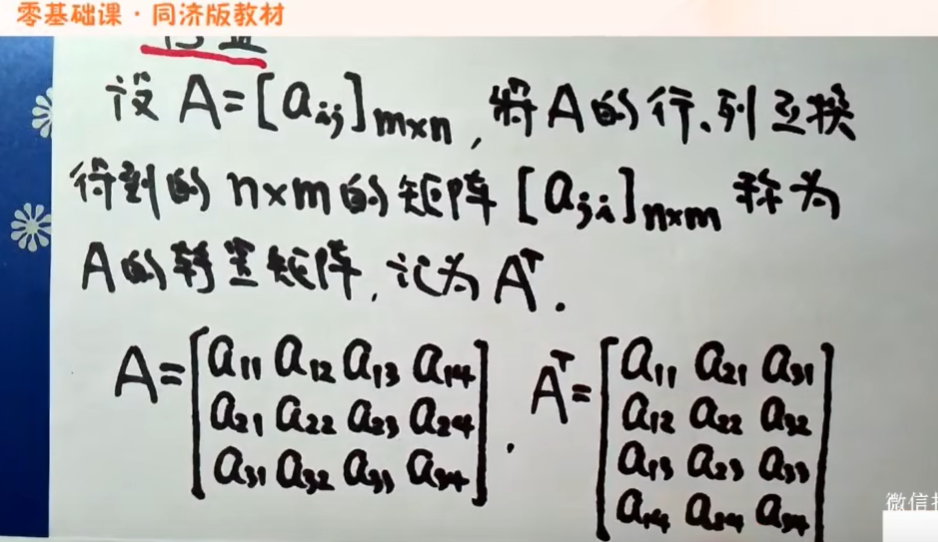 零基础课·同济版教材
设 A=[aij]m×n, 将A的行、列互换
得到的 n×m的矩阵 [aji]n×m 称为
A的转置矩阵, 记为 Aᵀ.
A=[a11 a12 a13 a14
a21 a22 a23 a24
a31 a32 a33 a34].
Aᵀ=[a11 a21 a31
a12 a22 a32
a13 a23 a33
a14 a24 a34]
微信